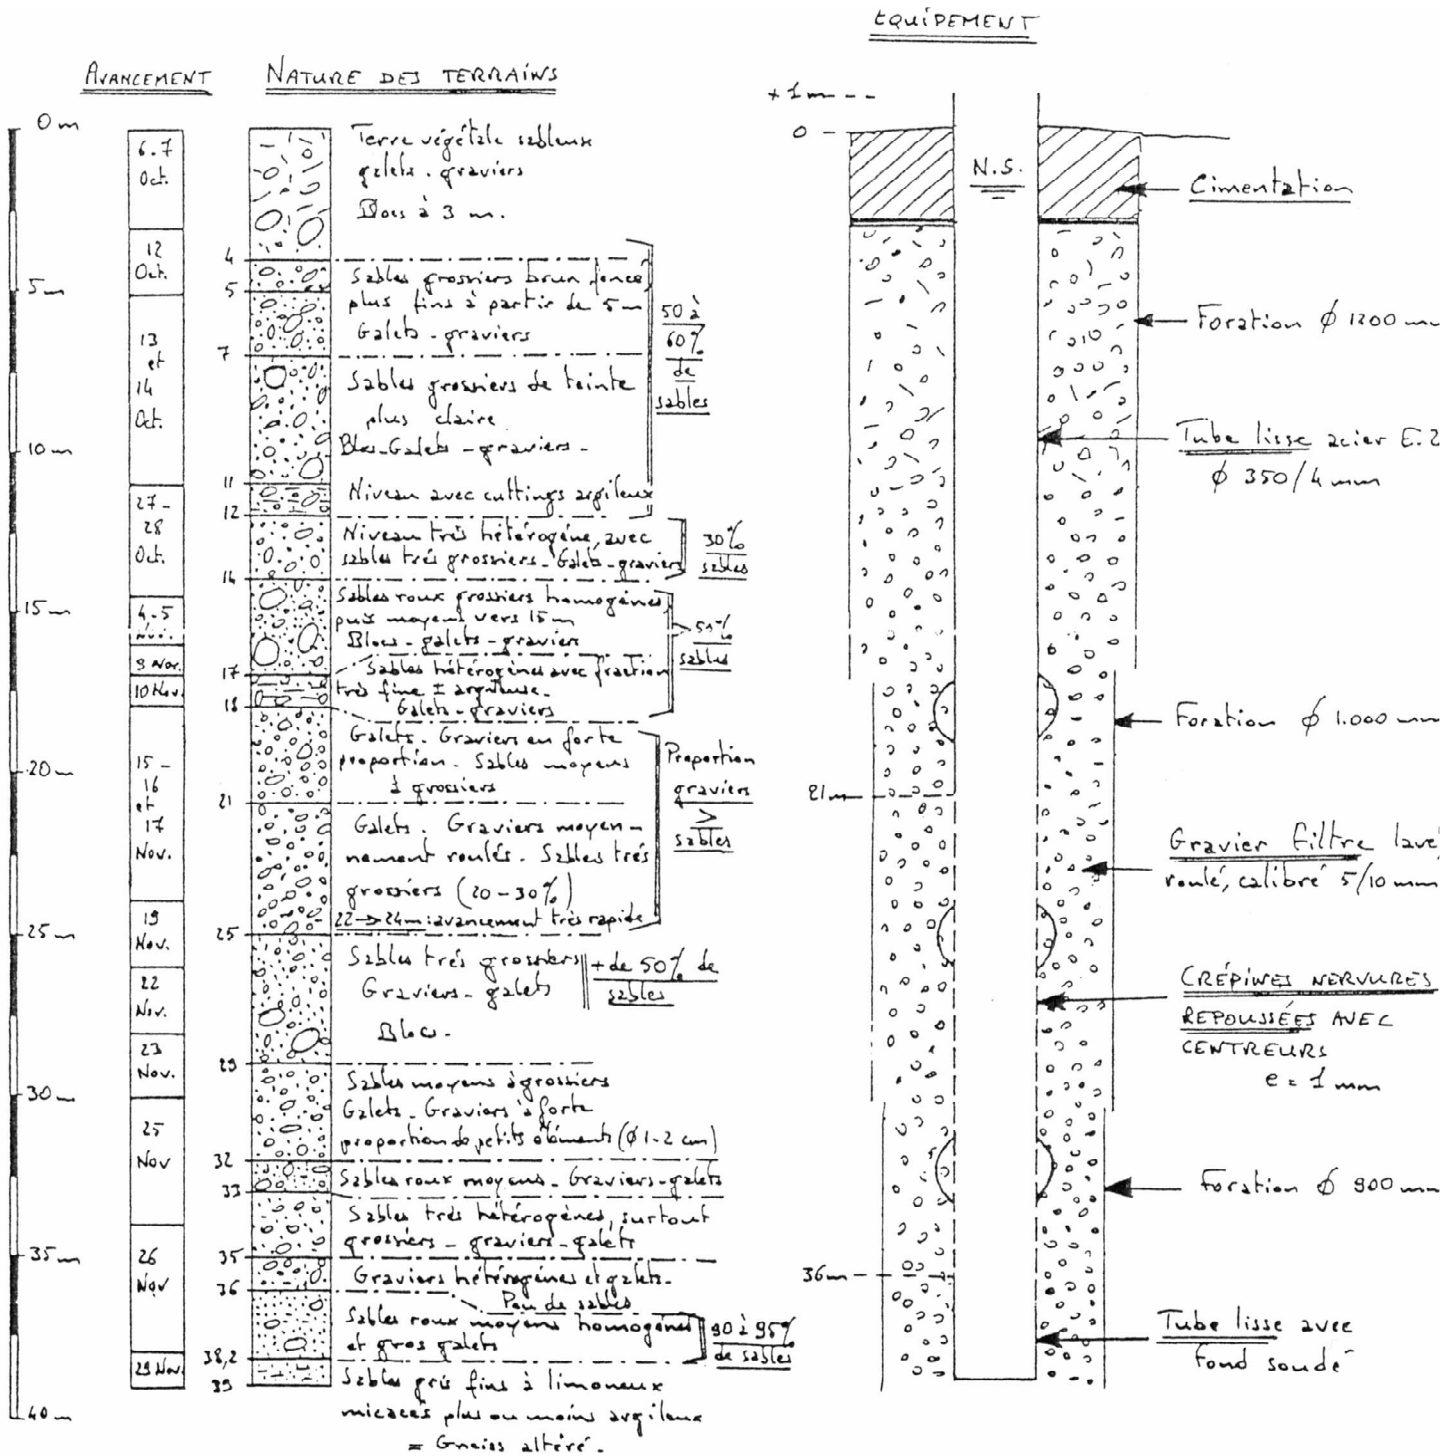 EQUIPEMENT
AVANCEMENT
NATURE DES TERRAINS
+ 1m
0m
5m
10m
15m
20m
25m
30m
35m
40m
6.7
Oct.
12
Oct.
13
et
14
Oct.
27-
28
Oct.
4-5
Nov.
9 Nov.
10 Nov.
15-
16
et
17
Nov.
19
Nov.
22
Nov.
23
Nov.
25
Nov
26
Nov
29 Nov
4
5
7
11
12
14
17
18
21
25
29
32
33
35
36
38,2
39
Terre végétale sableuse
galets. graviers
Blocs à 3 m.
Sables grossiers brun foncé,
plus fins à partir de 5m
Galets - graviers
Sables grossiers de teinte
plus claire
Blocs-Galets - graviers -
50 à
60%
de
sables
Niveau avec cuttings argileux
Niveau très hétérogène, avec
sables très grossiers - Galets - graviers
30%
sables
Sables roux grossiers homogènes,
puis moyens vers 15m
Blocs - galets - graviers
Sables hétérogènes avec fraction
très fine ± argileuse.
Galets - graviers
50%
sables
Galets. Graviers en forte
proportion. Sables moyens
à grossiers
Galets. Graviers moyen-
nement roulés. Sables très
grossiers (20-30%)
22 → 24m: avancement très rapide
Proportion
graviers
>
sables
Sables très grossiers
Graviers - galets
Blocs -
+ de 50% de
sables
Sables moyens à grossiers
Galets. Graviers à forte
proportion de petits éléments (ϕ 1-2 cm)
Sables roux moyens - Graviers-galets
Sables très hétérogènes, surtout
grossiers - graviers - galets
Graviers hétérogènes et galets -
Peu de sables
Sables roux moyens homogènes
et gros galets
90 à 95%
de sables
Sables gris fins à limoneux
micacés plus ou moins argileux
= Gneiss altéré.
0
N.S.
Cimentation
Foration ϕ 1200 mm
Tube lisse acier E.2
ϕ 350/4 mm
Foration ϕ 1.000 mm
21m
Gravier filtre lavé,
roulé, calibré 5/10 mm
CRÉPINES NERVURES
REPOUSSÉES AVEC
CENTREURS
e = 1 mm
Foration ϕ 900 mm
36m
Tube lisse avec
fond soudé